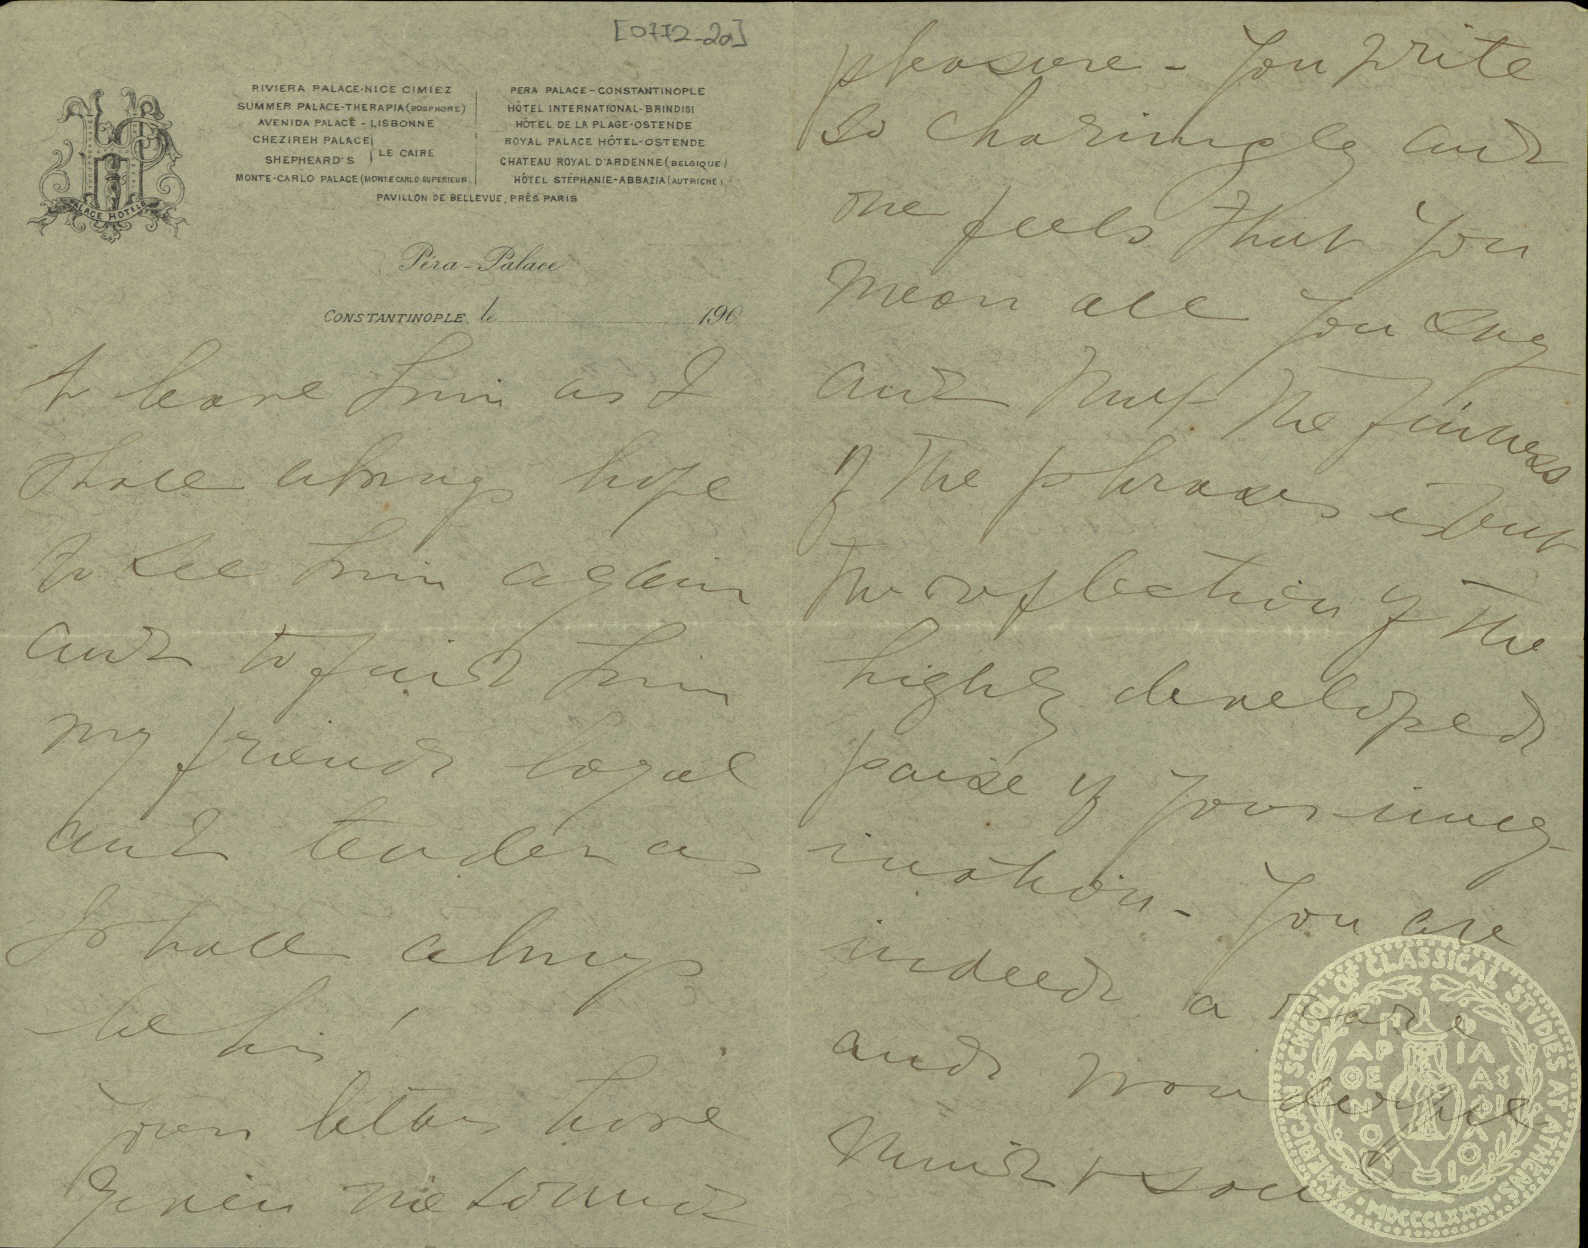 [0772-2a]
PALACE HOTELS
RIVIERA PALACE-NICE CIMIEZ
SUMMER PALACE-THERAPIA (BOSPHORE)
AVENIDA PALACE - LISBONNE
CHEZIREH PALACE
SHEPHEARD'S
LE CAIRE
MONTE-CARLO PALACE (MONTE CARLO SUPERIEUR)
PERA PALACE-CONSTANTINOPLE
HÔTEL INTERNATIONAL-BRINDISI
HÔTEL DE LA PLAGE-OSTENDE
ROYAL PALACE HÔTEL-OSTENDE
CHATEAU ROYAL D'ARDENNE (BELGIQUE)
HÔTEL STÉPHANIE-ABBAZIA (AUTRICHE)
PAVILLON DE BELLEVUE, PRÈS PARIS
Péra-Palace
CONSTANTINOPLE, le 190
to leave him as I
shall always hope
to see him again
and to find him
my friend loyal
and tender as
I shall always
be his,
Your letters have
given me so much
pleasure - You write
so charmingly and
one feels that you
mean all you say
and that the finness
of the phrases is but
the reflection of the
highly developed
poise of your imag-
ination - You are
indeed a rare
and wonderful
mind & soul
AMERICAN SCHOOL OF CLASSICAL STVDIES AT ATHENS
MDCCCLXXXI
ΠΑΡ ΘΕΝΟΥ ΦΙΛΑΣ ΦΙΛΟΙ